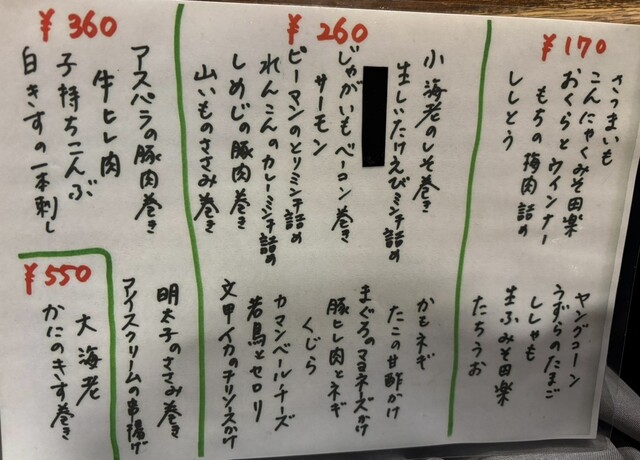 ¥170
さつまいも
こんにゃくみそ田楽
おくらとウインナー
もちの梅肉詰め
ししとう
ヤングコーン
うずらのたまご
ししゃも
生ふみそ田楽
たちうお
¥260
小海老のしそ巻き
生しいたけえびミンチ詰め
じゃがいもベーコン巻き
サーモン
ピーマンのとりミンチ詰め
れんこんのカレーミンチ詰め
しめじの豚肉巻き
山いものささみ巻き
かもネギ
たこの甘酢かけ
まぐろのマヨネーズかけ
豚ヒレ肉とネギ
くじら
カマンベールチーズ
若鳥とセロリ
文甲イカのチリソースかけ
¥360
アスパラの豚肉巻き
牛ヒレ肉
子持ちこんぶ
白きすの一本刺し
明太子のささみ巻き
アイスクリームの串揚げ
¥550
大海老
かにのきす巻き